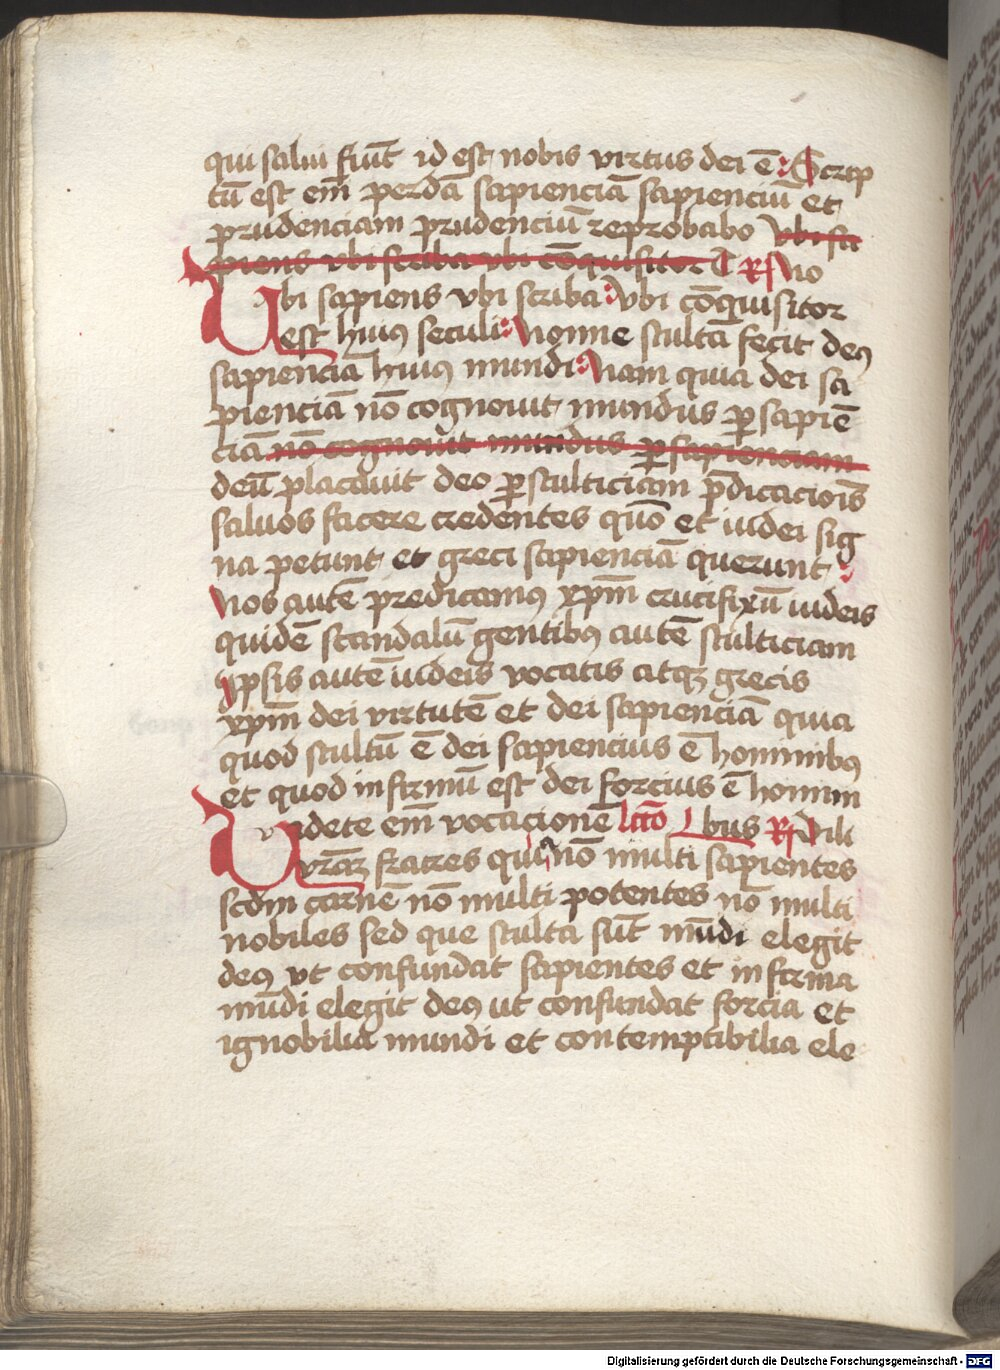 qui salui fiūt id est nobis virtus dei ē Scrip
tū est em̄ perdā sapienciā sapienciū et
prudenciam prudenciū reprobabo vbi sa
piens vbi scriba vbi cōquisitor R no
Vbi sapiens vbi scriba vbi cōquisitor
est huiꝰ seculi nonne stultā fecit deꝰ
sapienciā huiꝰ mundi nam quia dei sa
pienciā nō cognouit mundus ꝑ sapiē
ciā nō cognouit mundus ꝑ sapienciam
deū placauit deo ꝑ stulticiam p̄dicacioīs
saluos facere credentes quō et iudei sig
na petunt et greci sapienciā querunt
nos autē predicamꝰ xpm̄ crucifixū iudeis
quidē scandalū gentibꝰ autē stulticiam
ipsis autē iudeis vocatis atqꝫ grecis
xpm̄ dei virtutē et dei sapienciā quia
quod stultū ē dei sapiencius ē hominibꝰ
et quod infirmū est dei forcius ē homini
Videte em̄ vocacionē lctō bus R Dili
vrāꝫ fratres quia nō multi sapientes
scdm carnē nō multi potentes nō multi
nobiles sed que stulta sūt mūdi elegit
deꝰ vt confundat sapientes et infirma
mūdi elegit deꝰ ut confundat forcia et
ignobilia mundi et contemptibilia ele
Digitalisierung gefördert durch die Deutsche Forschungsgemeinschaft - DFG